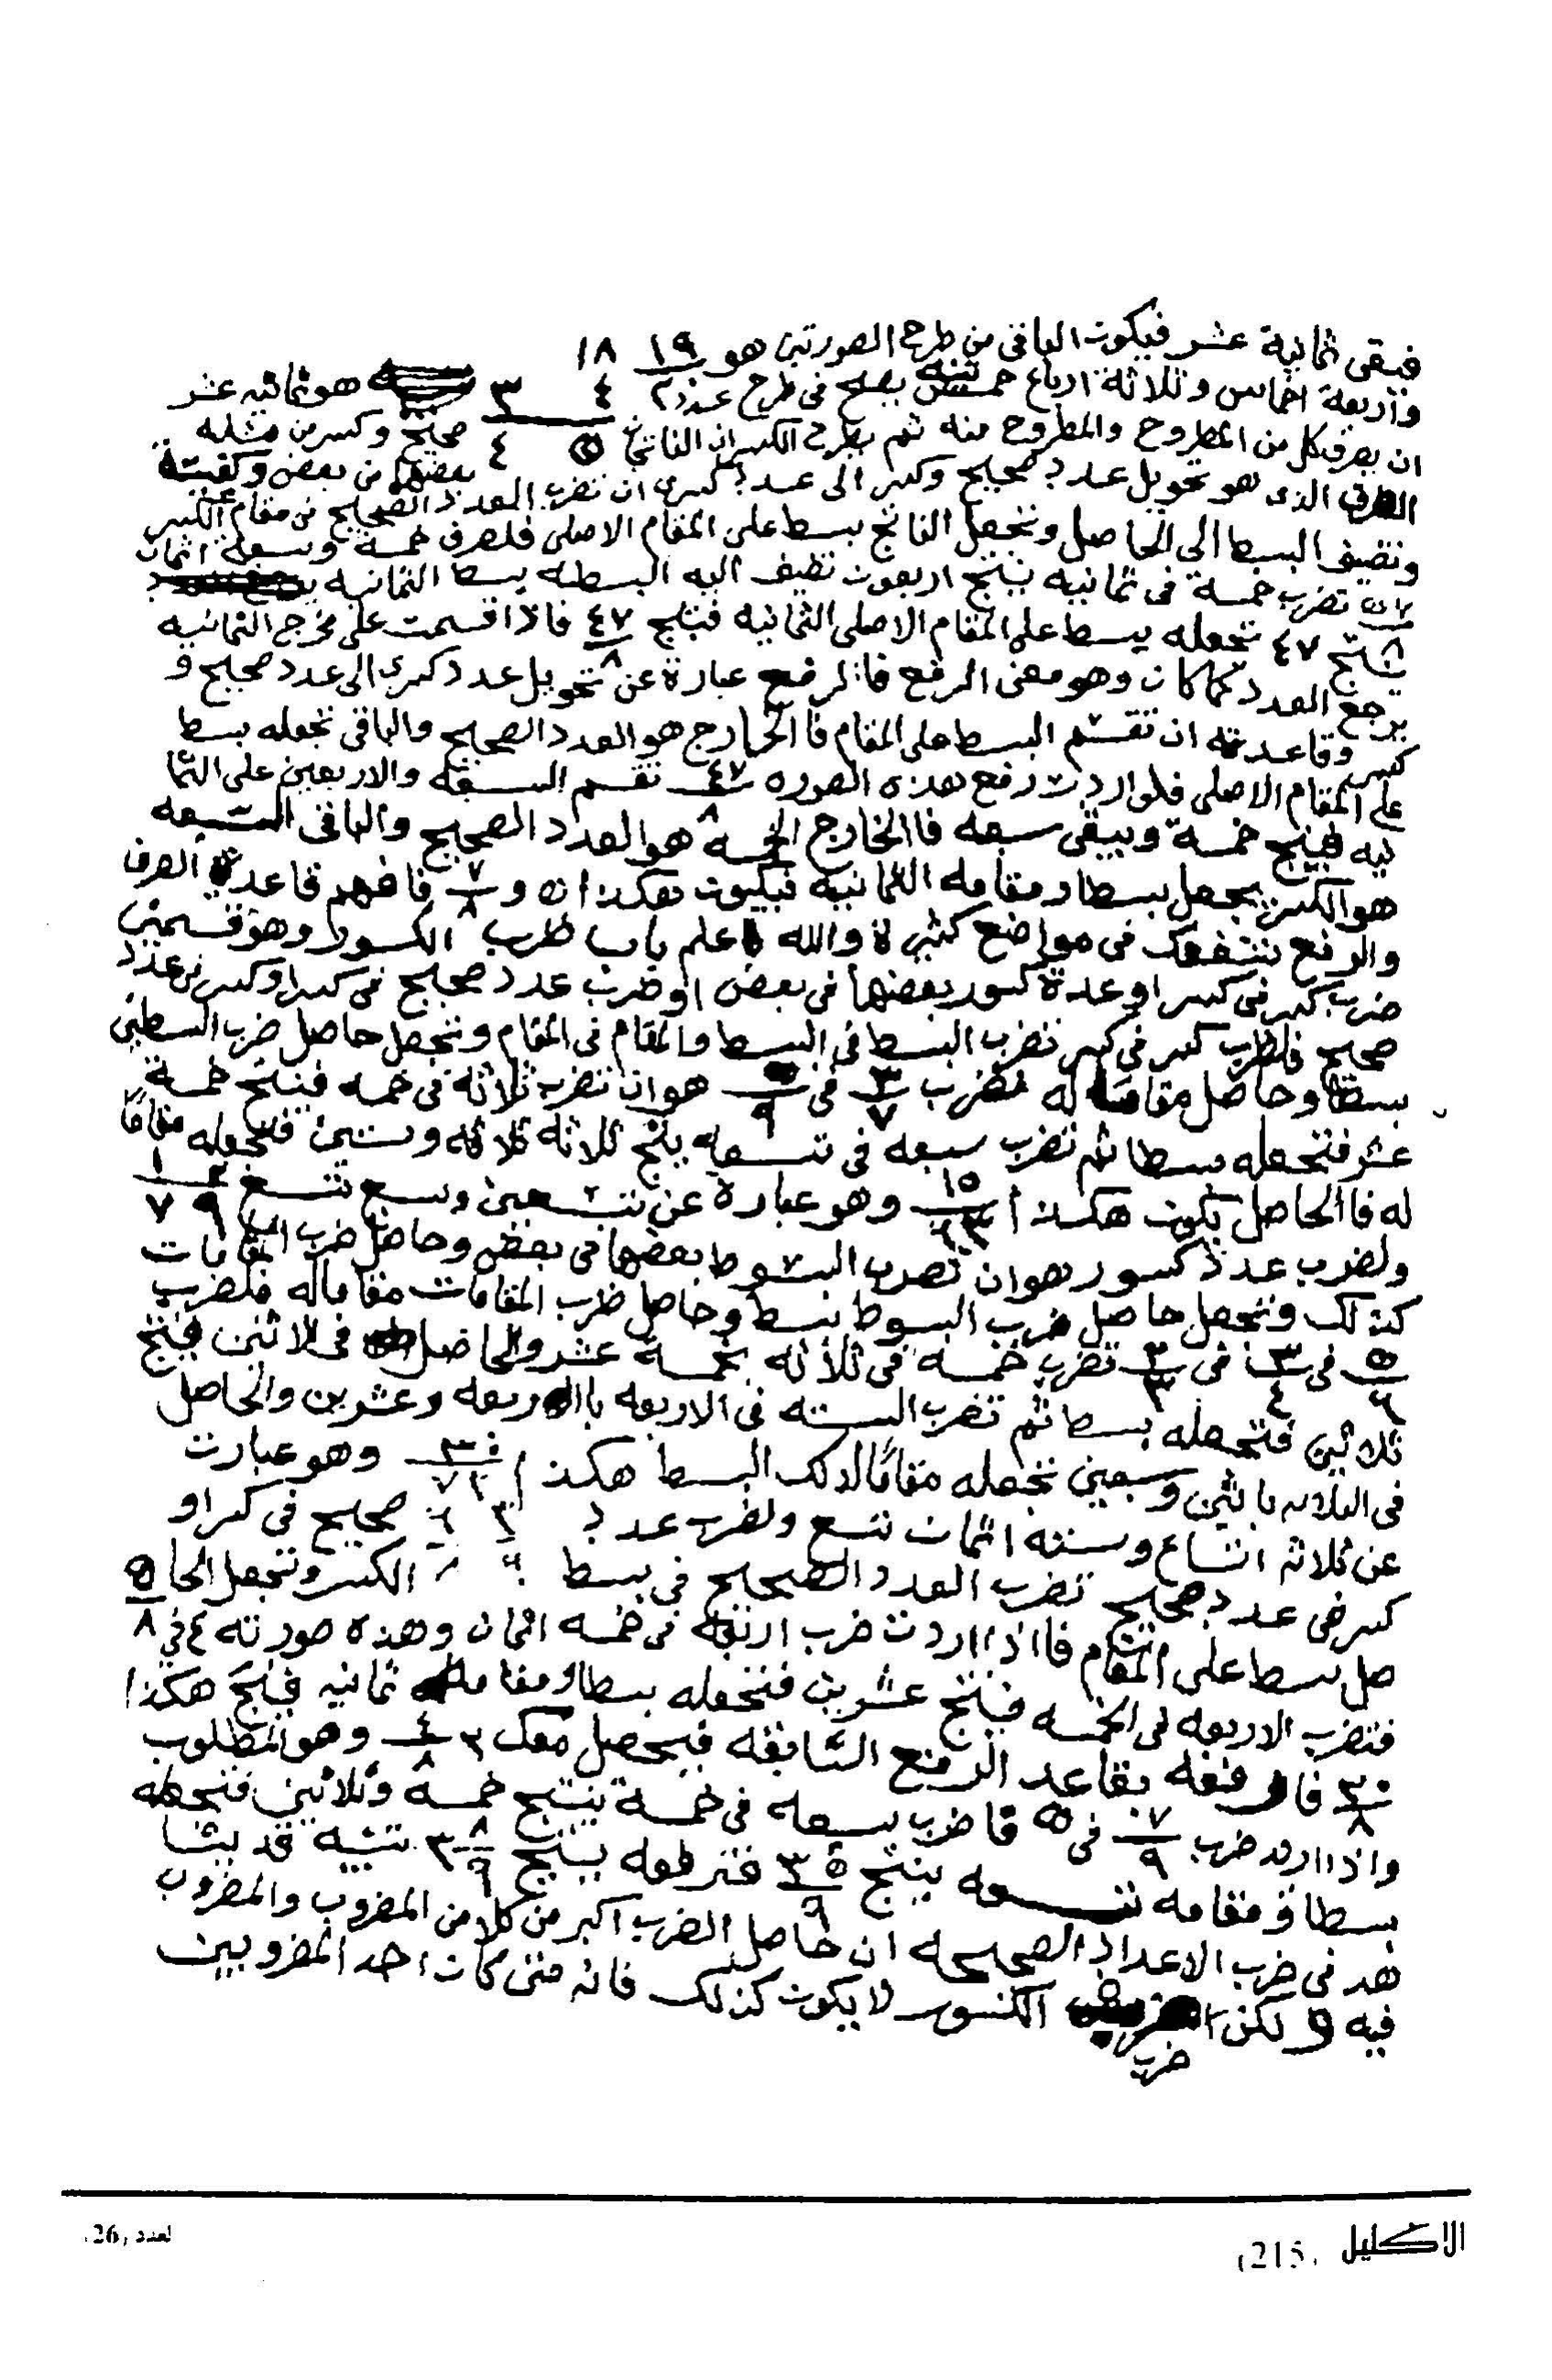 فبقى ثمانية عشر فيكون الباقى من طرح الصورتين هو ١٩ ١٨
واربعة اخماس وثلاثة ارباع خمس تنبه يصح فى طرح عدد ٤ ٣ هو ثمانيه عشر
ان يصرف كل من المطروح والمطروح منه ثم يطرح الكسران الناتجان ٥ ٤ صحيح وكسر من مثله
الصرف الذى هو تحويل عدد صحيح وكسر الى عدد كسرى ان تضرب العدد الصحيح فى مقام الكسر بعضهما من بعض وكيفية
وتضيف البسط الى الحاصل وتجعل الناتج بسط على المقام الاصلى فلصرف خمسة وسبعة اثمان
٥ ٧ تضرب خمسة فى ثمانيه ينتج اربعون تظيف اليه البسطه بسط الثمانيه
٨ ينتج ٤٧ تجعله بسط على المقام الاصلى الثمانيه فينتج ٤٧/٨ فاذا قسمت على مخرج الثمانيه
يرجع العدد كما كان وهو معنى الرفع فالرفع عبارة عن تحويل عدد كسرى الى عدد صحيح و
كسر وقاعدته ان تقسم البسط على المقام فالخارج هو العدد الصحيح والباقى تجعله بسط
على المقام الاصلى فلو اردت رفع هذه الصوره ٤٧/٨ تقسم السبعة والاربعين على الثما
نيه فينتج خمسة ويبقى سبعه فاالخارج الخمسه هو العدد الصحيح والباقى السبعه
هو الكسر يجعل بسطا ومقامه الثمانية فيكون هكذا ٥ و ٧/٨ فافهم قاعدة الصرف
والرفع تنتفعك فى مواضع كثيرة والله اعلم باب ظرب الكسور وهو قسمين
ضرب كسر فى كسر او عدة كسور بعضها فى بعض او ظرب عدد صحيح فى كسر او كسر فى عدد
صحيح فلظرب كسر فى كسر تضرب البسط فى البسط والمقام فى المقام وتجعل حاصل ضرب البسطين
بسطا وحاصل مقاما له فضرب ٣/٧ فى ٥/٩ هو ان تضرب ثلاثة فى خمسه فينتج خمسة
عشر فتجعله بسطا ثم تضرب سبعه فى تسعه ينتج ثلاثه وستين فتجعله مقاما
له فاالحاصل يكون هكذا ١٥/٦٣ وهو عبارة عن تسعين وسبع تسع ٢ ١ / ٩ ٧
ولضرب عدد كسور هو ان تضرب البسوط بعضها فى بعض وحاصل ضرب المقامات
كذلك وتجعل حاصل ضرب البسوط بسط وحاصل ظرب المقامات مقاماله فلضرب
٥/٦ فى ٣/٤ فى ٢/٣ تضرب خمسه فى ثلاثه بخمسة عشر والحاصل فى الاثنين فينتج
ثلاثين فتجعله بسطا ثم تضرب السته فى الاربعه باالاربعه وعشرين والحاصل
فى الثلاثه باثنين وسبعين تجعله مقاما لذلك البسط هكذا ٣٠/٧٢ وهو عبارت
عن ثلاثه اتساع وسته اثمان تسع ولضرب عدد ٣ ٦ / ٩ ٨ صحيح فى كسر او
كسر فى عدد صحيح تضرب العدد الصحيح فى بسط الكسر وتجعل الحا ٥
صل بسط على المقام فااذا اردت ضرب اربعه فى خمسه اثمان وهذه صورته ٤ فى ٨
فتضرب الاربعه فى الخمسه فينتج عشرين فتجعله بسطا ومقامه ثمانيه فينتج هكذا
٢٠/٨ فارفعه بقاعد الرفع السابقه فيحصل معك ٢ ٤/٨ وهو المطلوب
واذا اريد ضرب ٧/٩ فى ٥ فاضرب سبعه فى خمسة ينتج خمسة وثلاثين فتجعله
بسطا و مقامه تسعه ينتج ٣٥/٩ فترفعه ينتج ٣ ٨/٩ تنبيه قد يشا
هد فى ضرب الاعداد الصحيحه ان حاصل الضرب اكبر من كلا من المضروب والمضروب
فيه ولكن ضرب الكسور لا يكون كذلك فانه متى كان احد المضروبين
الاكليل (215)
العدد (26)